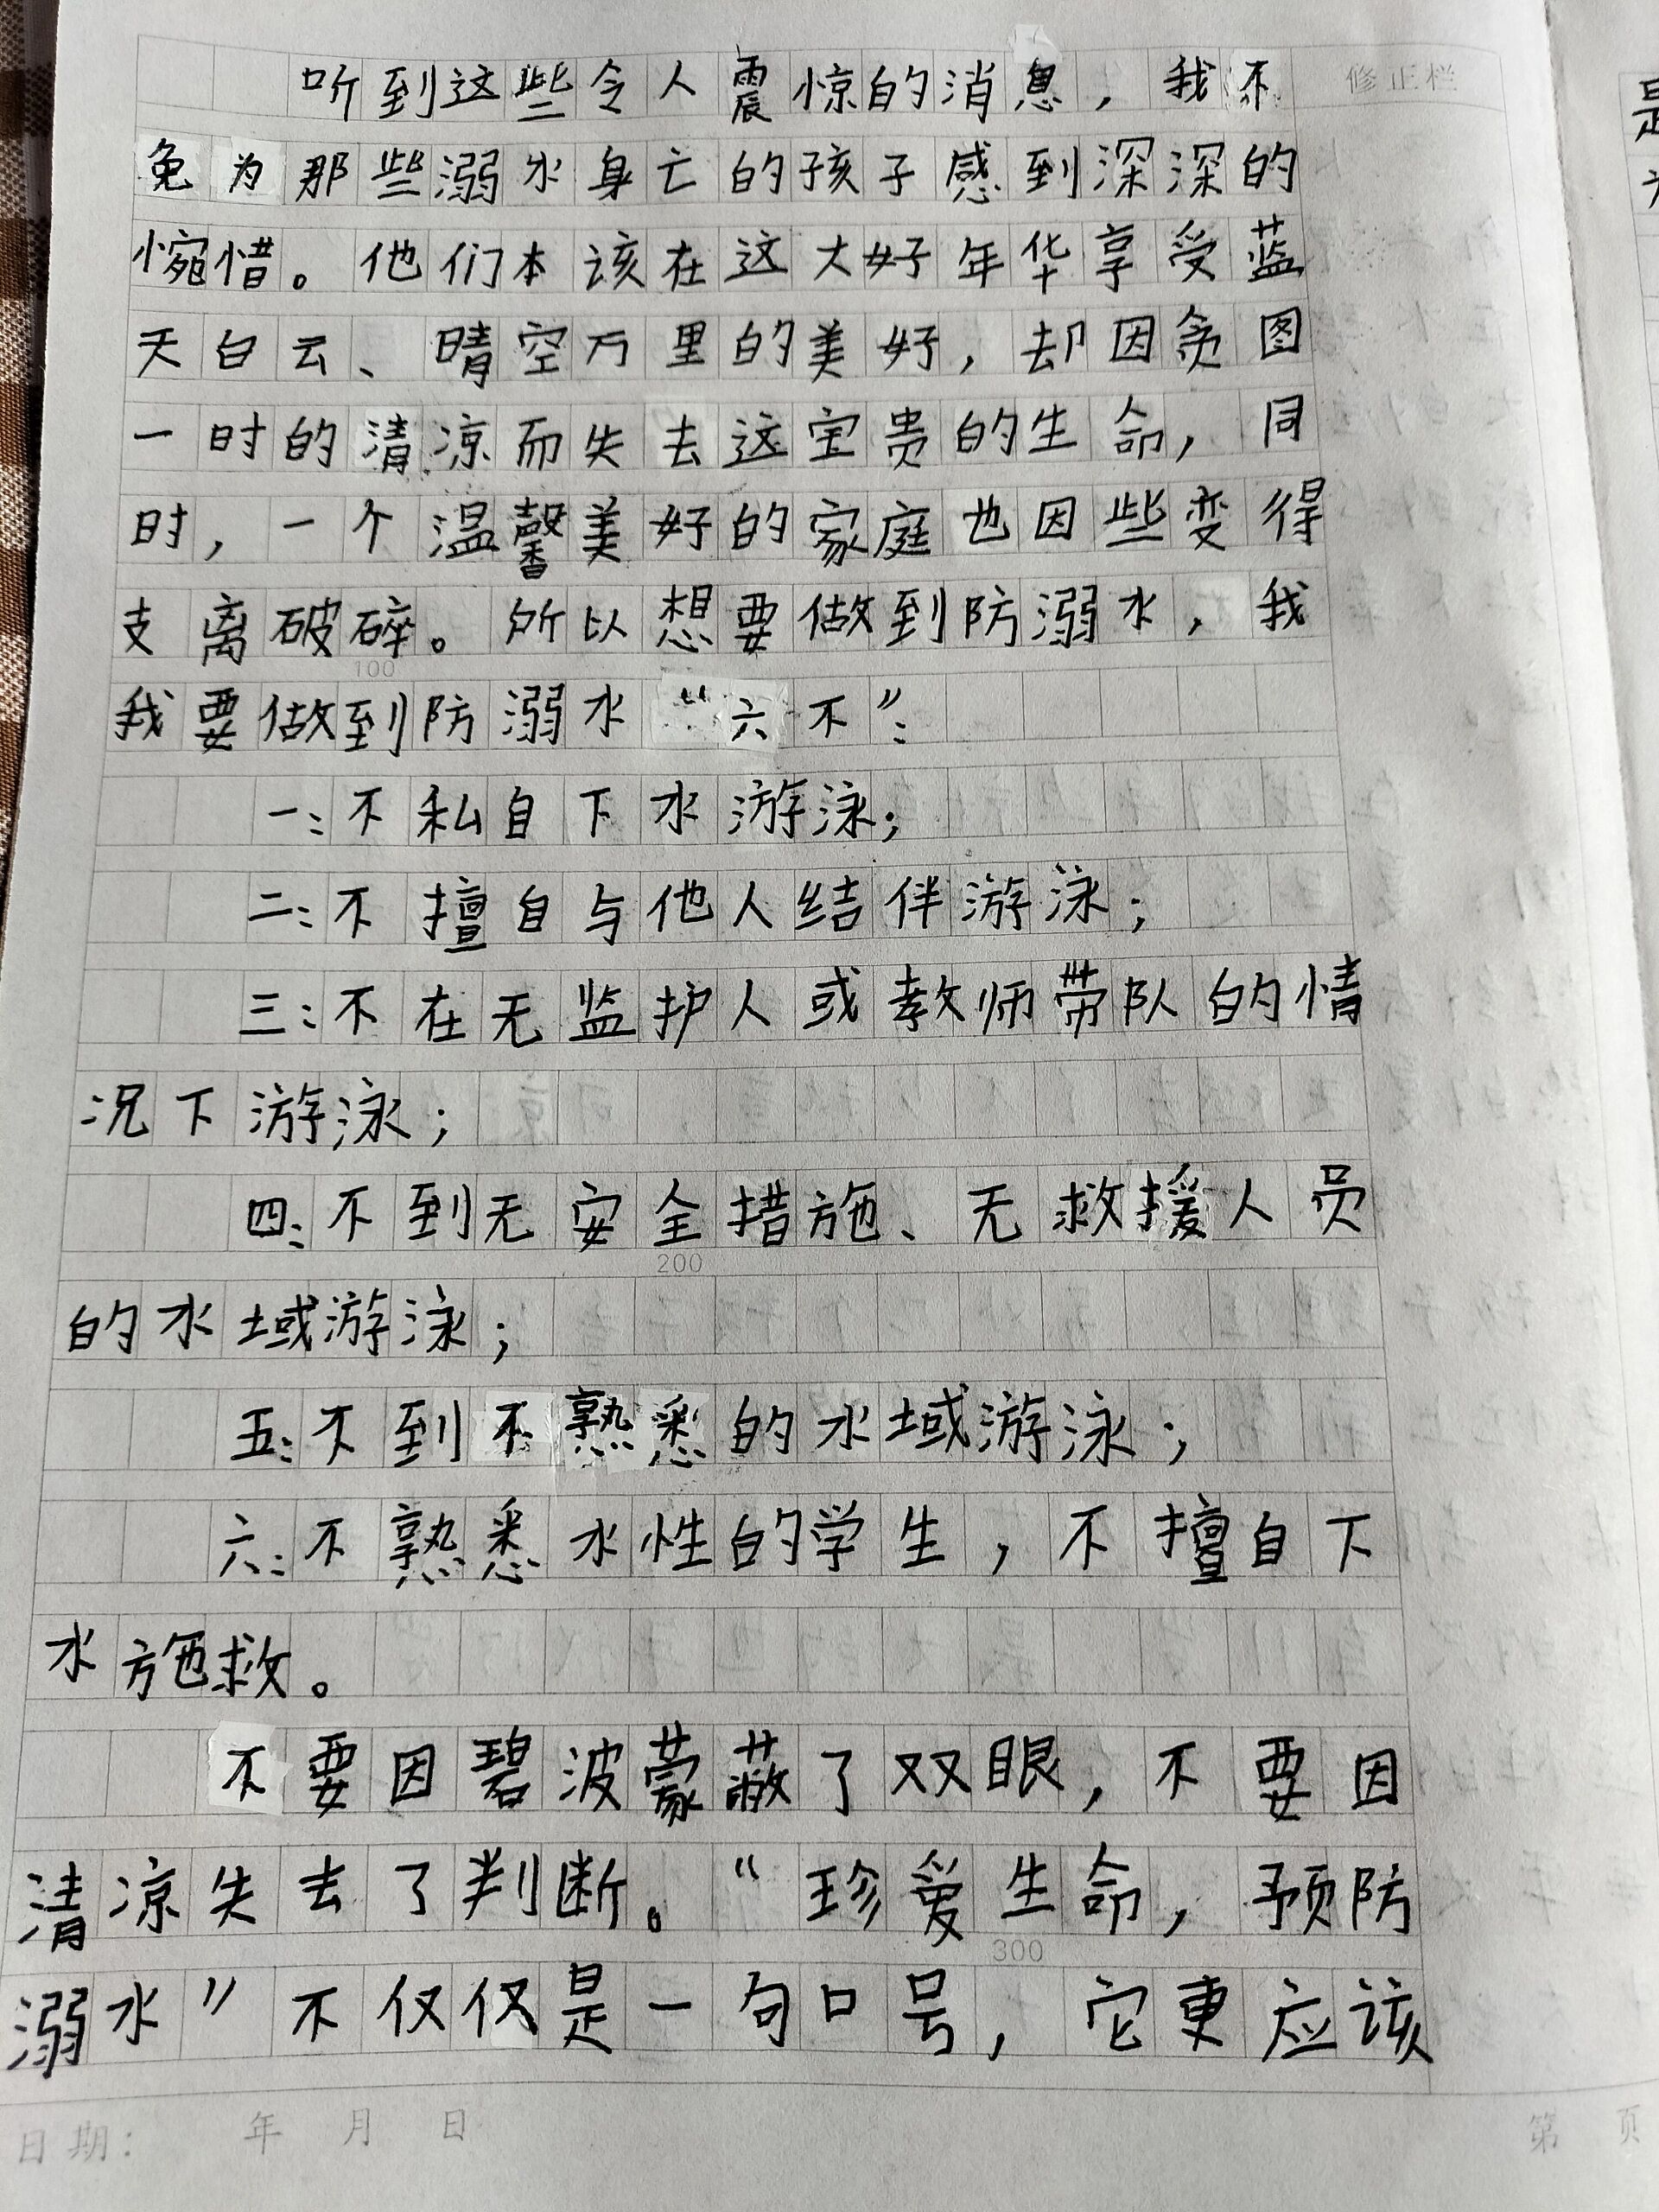 听到这些令人震惊的消息，我不
修正栏
免为那些溺水身亡的孩子感到深深的
惋惜。他们本该在这大好年华享受蓝
天白云、晴空万里的美好，却因贪图
一时的清凉而失去这宝贵的生命，同
时，一个温馨美好的家庭也因些变得
支离破碎。所以想要做到防溺水，我
100
我要做到防溺水“六不”：
一：不私自下水游泳；
二：不擅自与他人结伴游泳；
三：不在无监护人或教师带队的情
况下游泳；
四：不到无安全措施、无救援人员
200
的水域游泳；
五：不到不熟悉的水域游泳；
六：不熟悉水性的学生，不擅自下
水施救。
不要因碧波蒙蔽了双眼，不要因
清凉失去了判断。“珍爱生命，预防
300
溺水”不仅仅是一句口号，它更应该
日期： 年 月 日
第 页